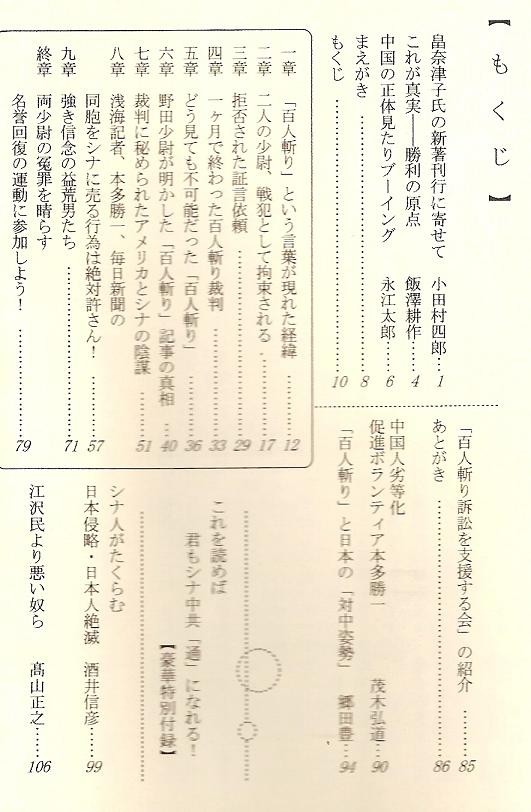 【もくじ】
畠奈津子氏の新著刊行に寄せて 小田村四郎…1
これが真実――勝利の原点 飯澤耕作…4
中国の正体見たりブーイング 永江太郎…6
まえがき…8
もくじ…10
一章 「百人斬り」という言葉が現れた経緯…12
二章 二人の少尉、戦犯として拘束される…17
三章 拒否された証言依頼…29
四章 一ヶ月で終わった百人斬り裁判…33
五章 どう見ても不可能だった「百人斬り」…36
六章 野田少尉が明かした「百人斬り」記事の真相…40
七章 裁判に秘められたアメリカとシナの陰謀…51
八章 浅海記者、本多勝一、毎日新聞の
同胞をシナに売る行為は絶対許さん!…57
九章 強き信念の益荒男たち…71
終章 両少尉の冤罪を晴らす
名誉回復の運動に参加しよう!…79
「百人斬り訴訟を支援する会」の紹介…85
あとがき…86
中国人劣等化
促進ボランティア本多勝一 茂木弘道…90
「百人斬り」と日本の「対中姿勢」 郷田豊…94
これを読めば
君もシナ中共「通」になれる!
【豪華特別付録】
シナ人がたくらむ
日本侵略・日本人絶滅 酒井信彦…99
江沢民より悪い奴ら 髙山正之…106